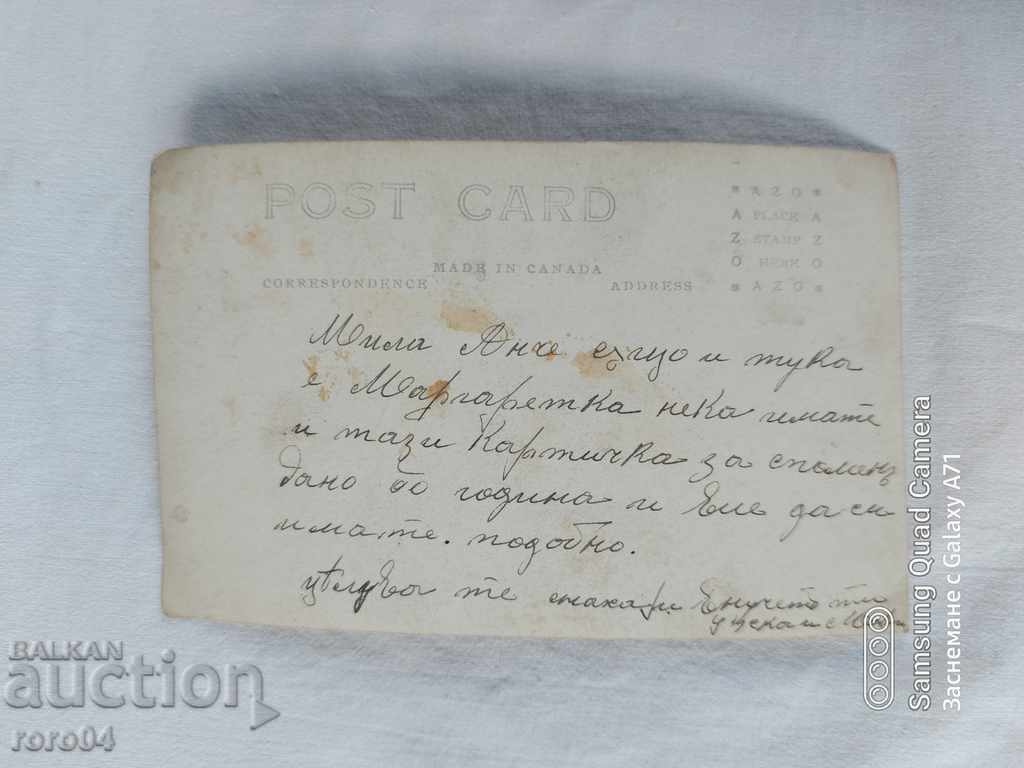 POST CARD
MADE IN CANADA
CORRESPONDENCE
ADDRESS
* AZO *
A PLACE A
Z STAMP Z
O HERE O
* AZO *
Мила Анче сѫщо и тука
е Маргаретка нека имате
и тази картичка за споменъ
дано до година и Вие да си
имате. подобно.
цѣлува те
BALKAN
auction
roro04
Samsung Quad Camera
Заснемане с Galaxy A71